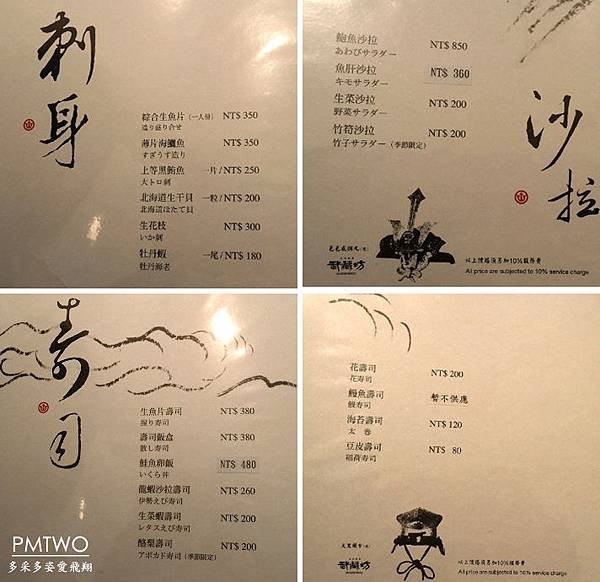 刺身
綜合生魚片（一人份） NT$ 350
造り盛り合せ
薄片海鱺魚 NT$ 350
すぎうす造り
上等黑鮪魚 一片 / NT$ 250
大トロ刺
北海道生干貝 一粒 / NT$ 200
北海道ほたて貝
生花枝 NT$ 300
いか刺
牡丹蝦 一尾 / NT$ 180
牡丹海老
沙拉
鮑魚沙拉 NT$ 850
あわびサラダー
魚肝沙拉 NT$ 360
キモサラダー
生菜沙拉 NT$ 200
野菜サラダー
竹筍沙拉 NT$ 200
竹子サラダー（季節限定）
武蘭坊
以上價格須另加10%服務費
All price are subjected to 10% service charge
壽司
生魚片壽司 NT$ 380
握り寿司
壽司飯盒 NT$ 380
散し寿司
鮭魚卵飯 NT$ 480
いくら丼
龍蝦沙拉壽司 NT$ 260
伊勢えび寿司
生菜蝦壽司 NT$ 200
レタスえび寿司
酪梨壽司 NT$ 200
アボカド寿司（季節限定）
花壽司 NT$ 200
花寿司
鰻魚壽司 暫不供應
鰻寿司
海苔壽司 NT$ 120
太 巻
豆皮壽司 NT$ 80
稲荷寿司
武蘭坊
以上價格須另加10%服務費
All price are subjected to 10% service charge
PMTWO
多采多姿愛飛翔